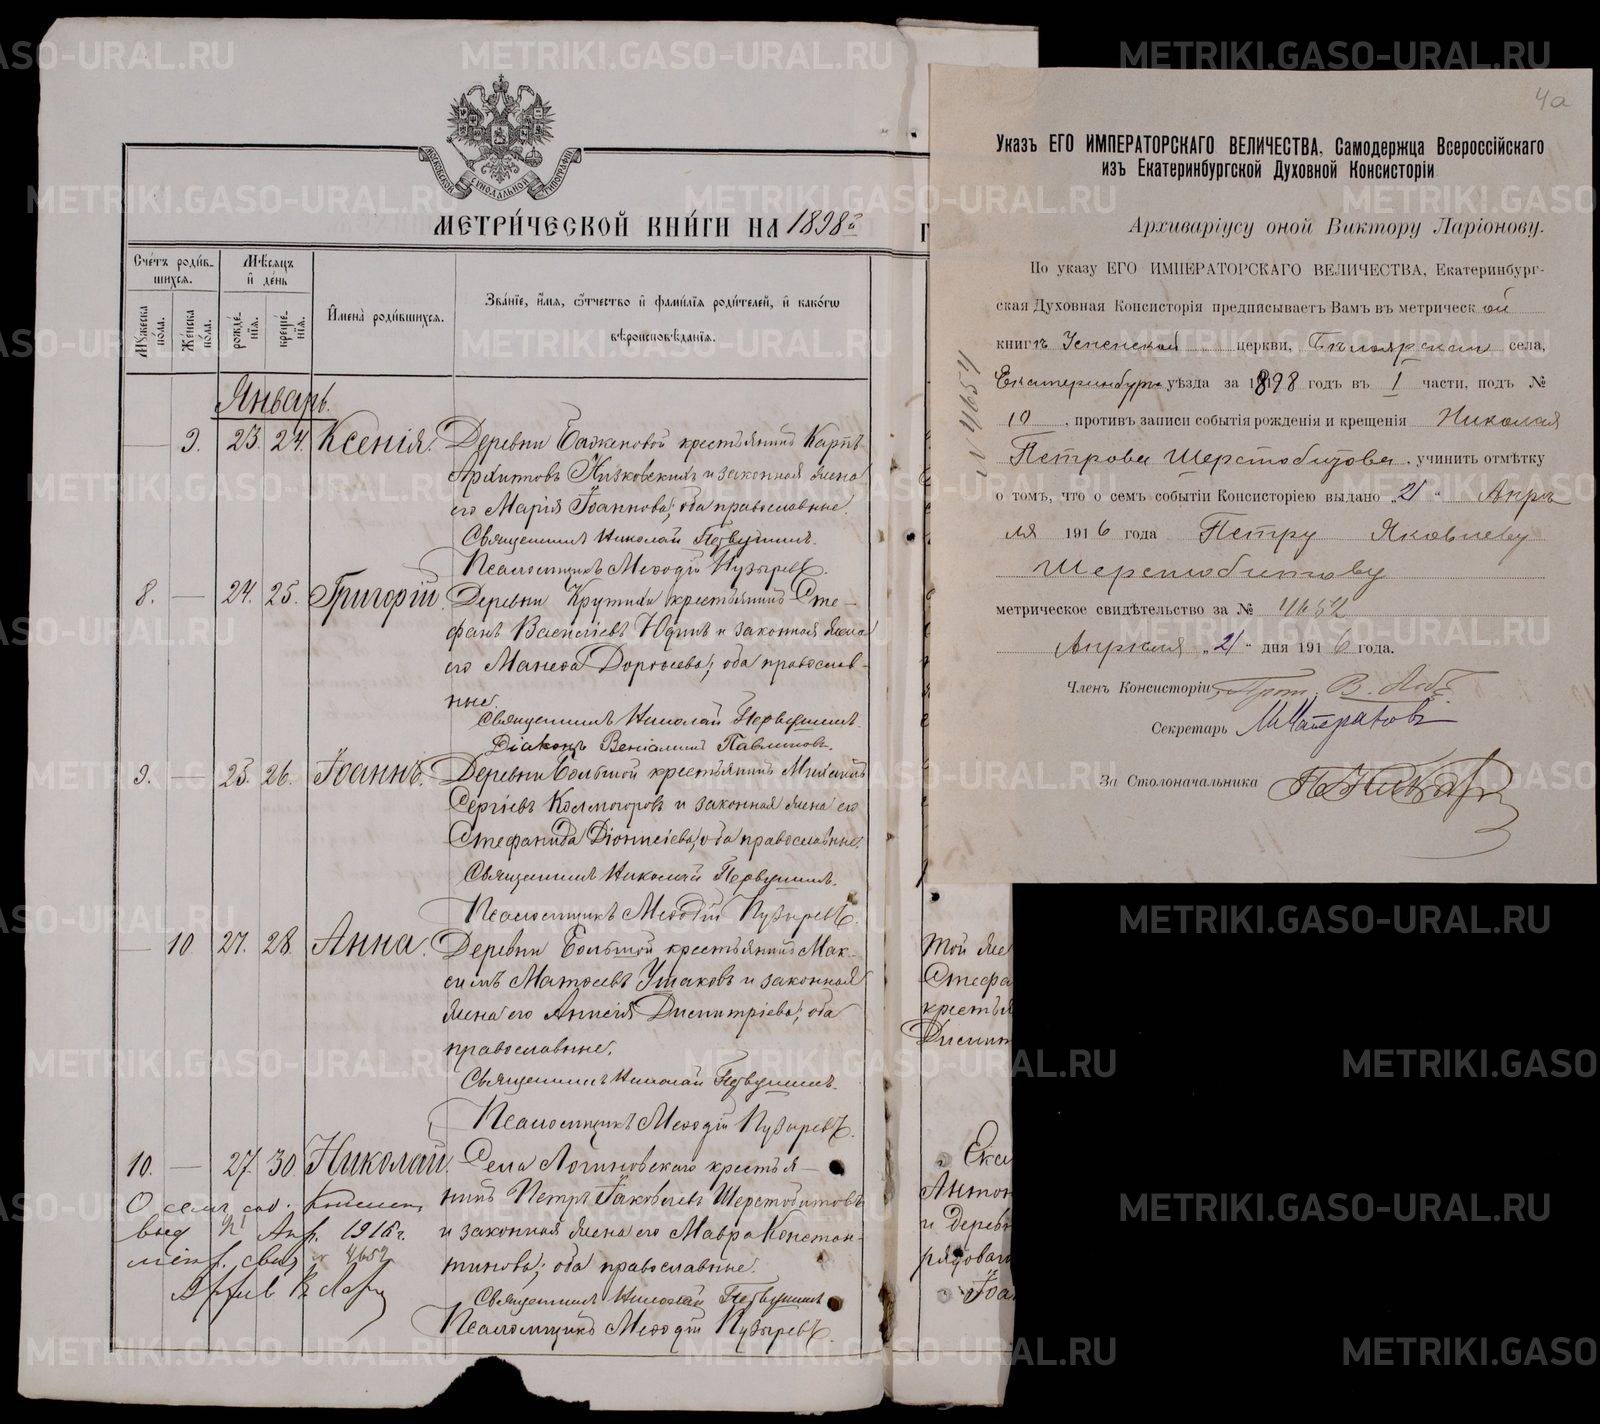 МОСКОВСКОЙ СѴНОДАЛЬНОЙ ТИПОГРАФІИ
МЕТРИ́ЧЕСКОЙ КНИ́ГИ НА 1898й Г
Счéтъ роди́в-
шихсѧ.
Мѣ́сѧцъ
и҆ день
Мꙋжеска по́ла.
Же́нска по́ла.
рожде́нїѧ.
креще́нїѧ.
И҆мена̀ роди́вшихсѧ.
Зва́нїе, и҆́мѧ, ѻ҆́тчество и҆ фами́лїѧ роди́телей, и҆ како́гѡ
вѣроисповѣ́данїѧ.
Январь.
— 9. 23. 24. Ксенія. Деревни Баженовой крестьянинъ Карпъ
Архиповъ Низковскихъ и законная жена
его Марія Іоаннова; оба православные.
Священникъ Николай Первушинъ.
Псаломщикъ Меѳодій Пузыревъ.
8. — 24. 25. Григорій. Деревни Крутихи крестьянинъ Сте-
фанъ Васильевъ Юдинъ и законная жена
его Манеѳа Дороѳеева; оба православ-
ные.
Священникъ Николай Первушинъ.
Діаконъ Веніаминъ Павлиновъ.
9. — 25. 26. Іоаннъ. Деревни Большой крестьянинъ Михаилъ
Сергіевъ Колмогоровъ и законная жена его
Стефанида Діонисіева; оба православные.
Священникъ Николай Первушинъ.
Псаломщикъ Меѳодій Пузыревъ.
— 10 27. 28. Анна. Деревни Большой крестьянинъ Мак-
симъ Матѳеевъ Ушаковъ и законная
жена его Анисія Димитріева; оба
православные.
Священникъ Николай Первушинъ.
Псаломщикъ Меѳодій Пузыревъ.
10. — 27 30 Николай. Села Логиновскаго крестья-
нинъ Петръ Іаковлевъ Шерстобитовъ
и законная жена его Мавра Констан-
тинова; оба православные.
Священникъ Николай Первушинъ
Псаломщикъ Меѳодій Пузыревъ.
О семъ соб.
выд 21 Апр. 1916 г.
метр. свид № 4652
Той же
Стефа
крестья
Димит
Ека
Антон
и дерев
рядовог
Іоа
4а
Указъ ЕГО ИМПЕРАТОРСКАГО ВЕЛИЧЕСТВА, Самодержца Всероссійскаго
изъ Екатеринбургской Духовной Консисторіи
Архиваріусу оной Виктору Ларіонову.
По указу ЕГО ИМПЕРАТОРСКАГО ВЕЛИЧЕСТВА, Екатеринбург-
ская Духовная Консисторія предписываетъ Вамъ въ метрической
книгѣ Успенской церкви, Бѣлоярскаго села,
Екатеринбург. уѣзда за 1898 годъ въ I части, подъ №
10, противъ записи событія рожденія и крещенія Николая
Петрова Шерстобитова, учинить отмѣтку
о томъ, что о семъ событіи Консисторіею выдано „21“ Апрѣ-
ля 1916 года Петру Яковлеву
Шерстобитову
метрическое свидѣтельство за № 4652
Апрѣля „21“ дня 1916 года.
Членъ Консисторіи, Прот. В.
Секретарь
За Столоначальника
№ 4654
METRIKI.GASO-URAL.RU